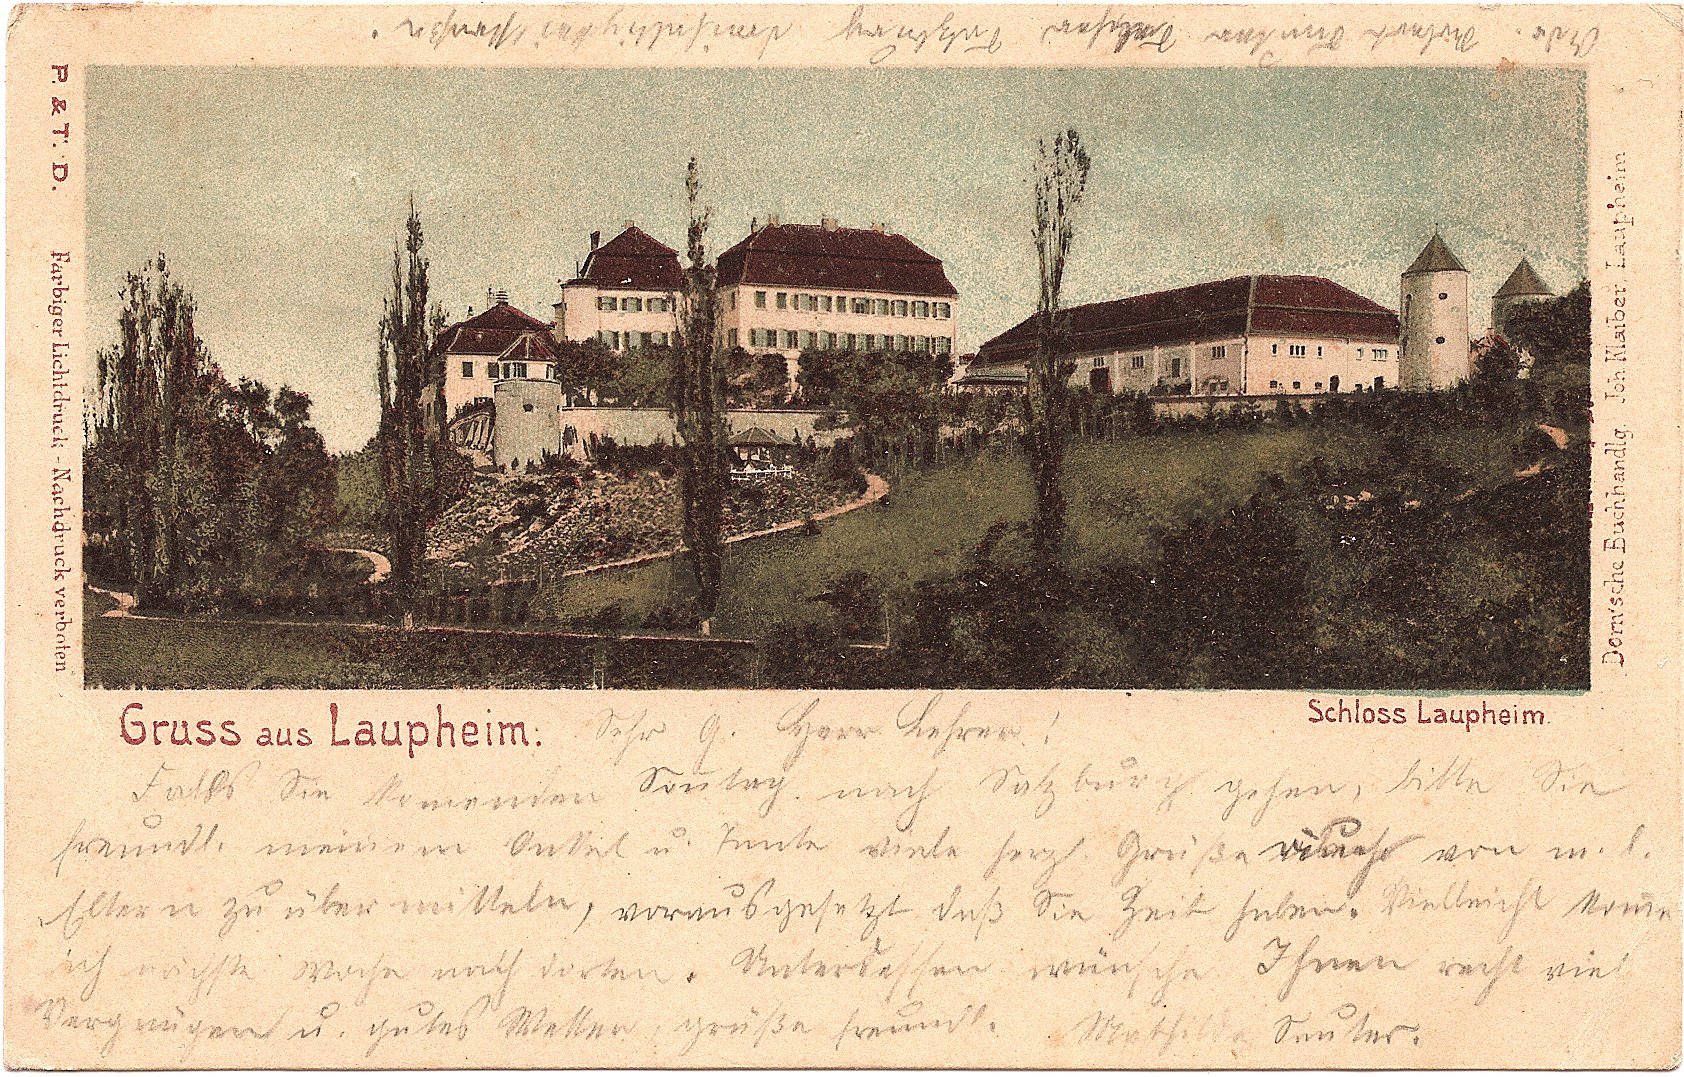 P. & T. D. Farbiger Lichtdruck - Nachdruck verboten
Dorn'sche Buchhandlg. Joh. Klaiber Laupheim
Schloss Laupheim.
Gruss aus Laupheim: Sehr g. Herr Lehrer!
Falls Sie komenden Sontag nach Salzburg gehen, bitte Sie
freundl. meinem Onkel u. Tante viele herzl. Grüße auch von m. l.
Eltern zu übermitteln, vorausgesetzt daß Sie Zeit haben. Vielleicht kome
ich nächste Woche nach dorten. Unterdessen wünsche Ihnen recht viel
Vergnügen u. gutes Wetter. grüße freundl. Mathilde Sauter.